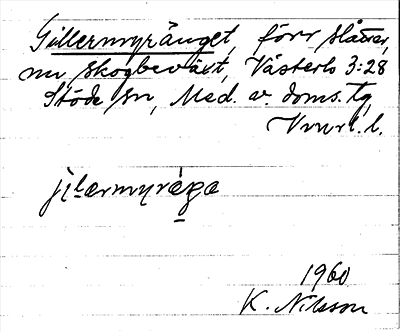 Gillermyränget, förr slåtter,
nu skogbeväxt, Västerlo 3:28
Stöde sn, Med. v. doms. tg,
l.
1960
K. Nilsson